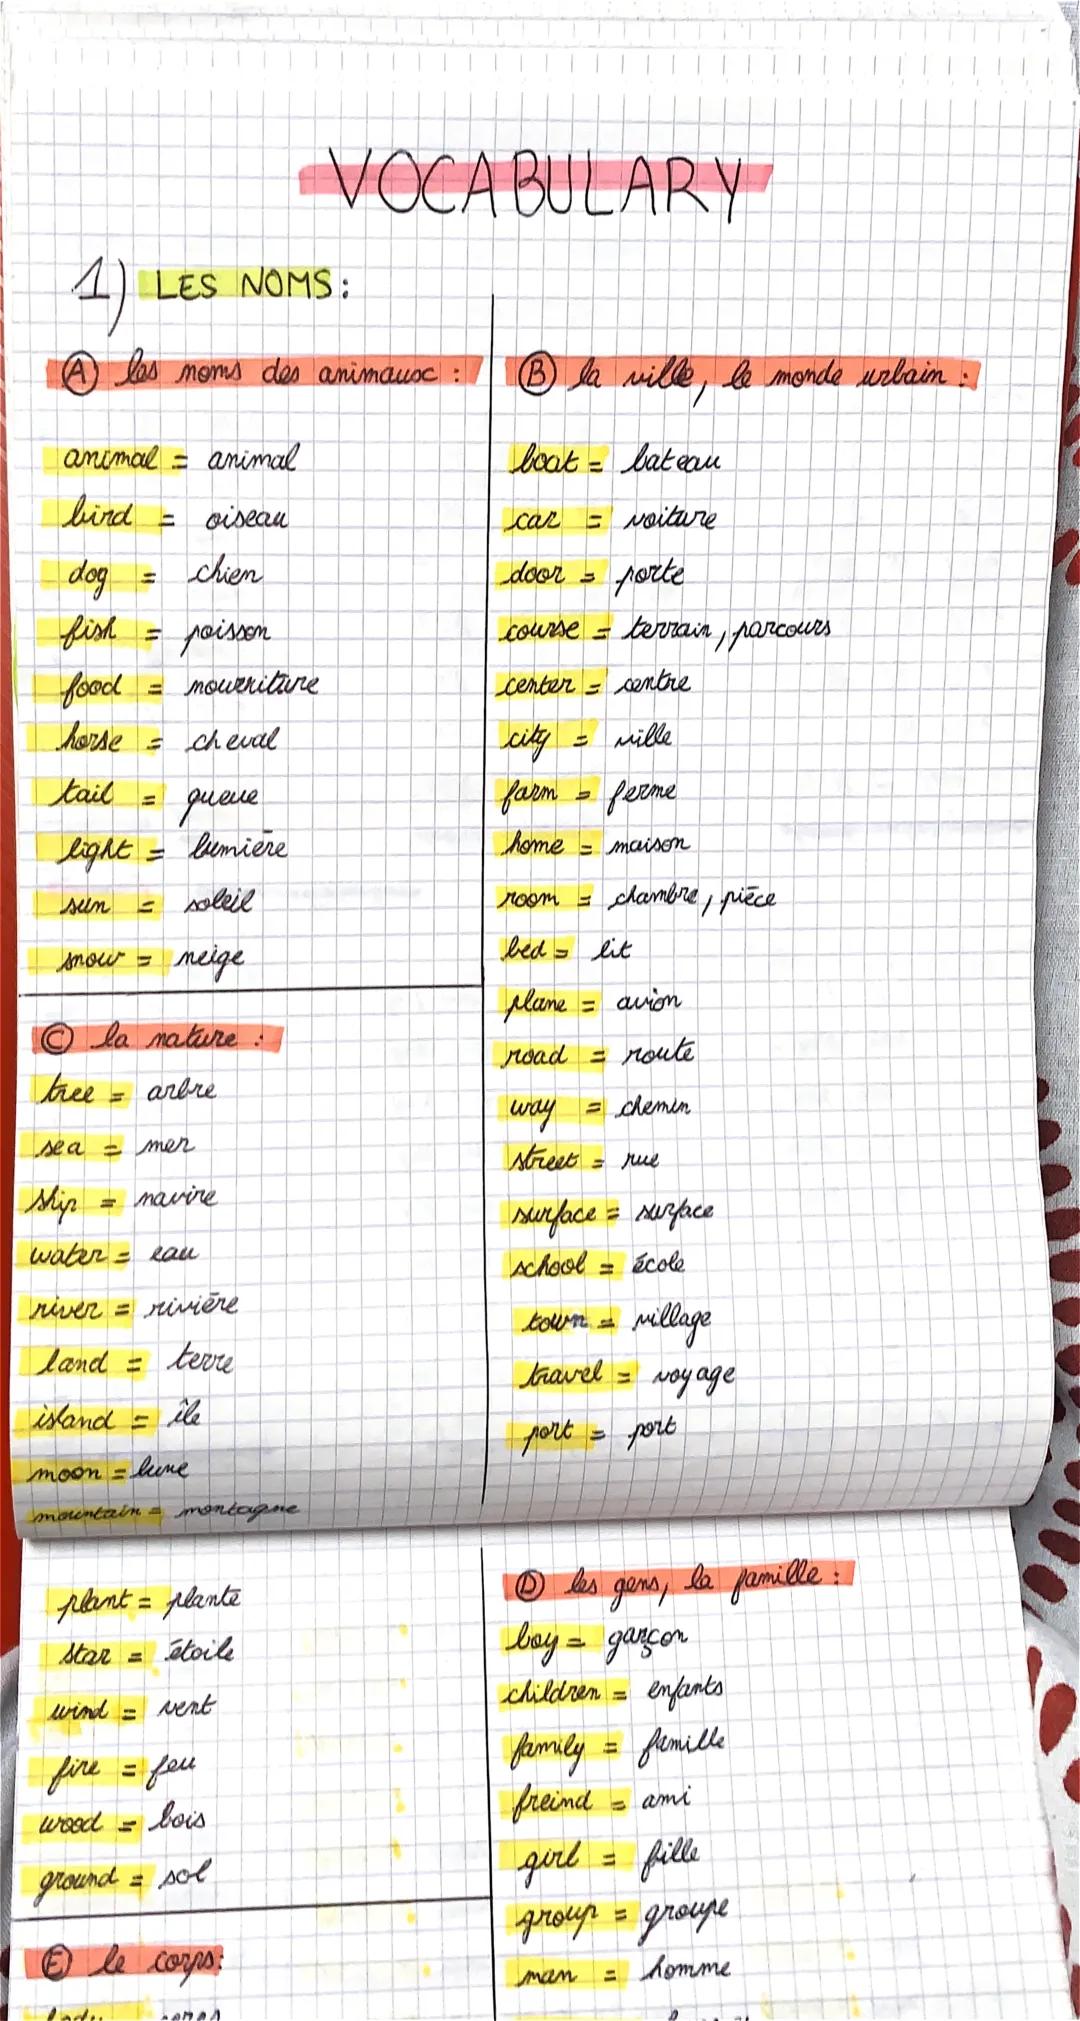 VOCABULARY
1) LES NOMS:
A les noms des animaux :
animal = animal
bird = oiseau
dog = chien
fish = poisson
food = nourriture
horse = cheval
tail = queue
light = lumière
sun = soleil
snow = neige
B la ville, le monde urbain :
boat = bateau
car = voiture
door = porte
course = terrain, parcours
center = centre
city = ville
farm = ferme
home = maison
room = chambre, pièce
bed = lit
plane = avion
road = route
way = chemin
street = rue
surface = surface
school = école
town = village
travel = voyage
port = port
C la nature :
tree = arbre
sea = mer
ship = navire
water = eau
river = rivière
land = terre
island = île
moon = lune
mountain = montagne
plant = plante
star = étoile
wind = vent
fire = feu
wood = bois
ground = sol
D les gens, la famille :
boy = garçon
children = enfants
family = famille
freind = ami
girl = fille
group = groupe
man = homme
E le corps:
body corps